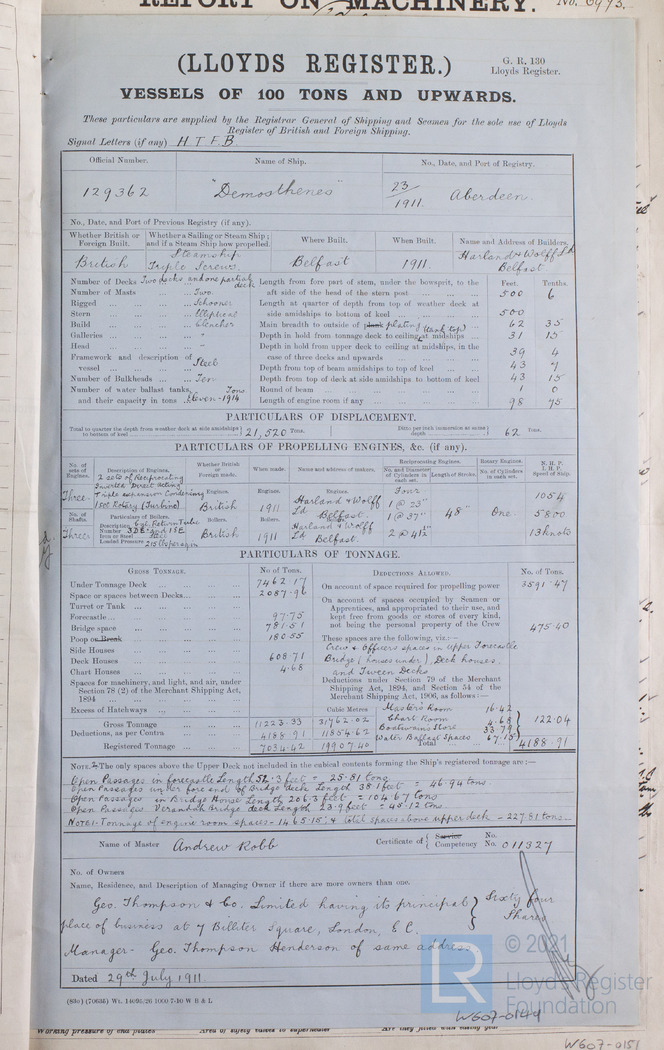 REPORT ON MACHINERY. No. 6993.
(LLOYDS REGISTER.)
G. R. 130
Lloyds Register.
VESSELS OF 100 TONS AND UPWARDS.
These particulars are supplied by the Registrar General of Shipping and Seamen for the sole use of Lloyds
Register of British and Foreign Shipping.
Signal Letters (if any) H T F B
Official Number. Name of Ship. No., Date, and Port of Registry.
129362 "Demosthenes" 23/1911. Aberdeen.
No., Date, and Port of Previous Registry (if any).
Whether British or Foreign Built. Whether a Sailing or Steam Ship; and if a Steam Ship how propelled. Where Built. When Built. Name and Address of Builders.
British Steamship Triple Screws Belfast 1911 Harland & Wolff Ld Belfast
Number of Decks Two decks and one partial deck
Number of Masts Two
Rigged Schooner
Stern Elliptical
Build Clencher
Galleries -
Head -
Framework and description of vessel Steel
Number of Bulkheads Ten
Number of water ballast tanks, and their capacity in tons Seven-1914 Tons
Feet. Tenths.
Length from fore part of stem, under the bowsprit, to the aft side of the head of the stern post 500 6
Length at quarter of depth from top of weather deck at side amidships to bottom of keel 500
Main breadth to outside of plank plating 62 35
Depth in hold from tonnage deck to ceiling at midships (tank top) 31 15
Depth in hold from upper deck to ceiling at midships, in the case of three decks and upwards 39 4
Depth from top of beam amidships to top of keel 43 7
Depth from top of deck at side amidships to bottom of keel 43 15
Round of beam 1 0
Length of engine room if any 98 75
PARTICULARS OF DISPLACEMENT.
Total to quarter the depth from weather deck at side amidships to bottom of keel 21,520 Tons. Ditto per inch immersion at same depth 62 Tons.
PARTICULARS OF PROPELLING ENGINES, &c. (if any).
No. of sets of Engines. Description of Engines. Whether British or Foreign made. When made. Name and address of makers. Reciprocating Engines. No. and Diameter of Cylinders in each set. Length of Stroke. Rotary Engines. No. of Cylinders in each set. N. H. P. I. H. P. Speed of Ship.
Three 2 sets of Reciprocating Inverted Direct Acting Triple expansion Condensing 1 set Rotary (Turbine)
Engines. British Engines. 1911 Engines. Harland & Wolff Ld Belfast.
Four 1 @ 23" 1 @ 37" 2 @ 41½" 48" One. 1054 5800 13 knots
No. of Shafts. Three Particulars of Boilers.
Description Cyl. Return Tube
Number 3 D.E. and 1 S.E.
Iron or Steel Steel
Loaded Pressure 215 lbs per sq in
Boilers. British Boilers. 1911 Boilers. Harland & Wolff Ld Belfast.
PARTICULARS OF TONNAGE.
GROSS TONNAGE. No of Tons. DEDUCTIONS ALLOWED. No. of Tons.
Under Tonnage Deck 7462.17
Space or spaces between Decks 2087.96
Turret or Tank
Forecastle 97.75
Bridge space 781.51
Poop or Break 180.55
Side Houses
Deck Houses 608.71
Chart Houses 4.68
Spaces for machinery, and light, and air, under Section 78 (2) of the Merchant Shipping Act, 1894
Excess of Hatchways
Cubic Metres
Gross Tonnage 11223.33 31762.02
Deductions, as per Contra 4188.91 11854.62
Registered Tonnage 7034.42 19907.40
On account of space required for propelling power 3591.47
On account of spaces occupied by Seamen or Apprentices, and appropriated to their use, and kept free from goods or stores of every kind, not being the personal property of the Crew 475.40
These spaces are the following, viz:—
Crew & Officers spaces in upper Forecastle
Bridge (houses under), Deck houses.
and Tween Decks
Deductions under Section 79 of the Merchant Shipping Act, 1894, and Section 54 of the Merchant Shipping Act, 1906, as follows:—
Master's Room 16.42
Chart Room 4.68
Boatswains Store 33.79
Water Ballast Spaces 67.15
122.04
Total 4188.91
NOTE.2—The only spaces above the Upper Deck not included in the cubical contents forming the Ship's registered tonnage are:—
Open Passages in forecastle Length 52.3 feet = 25.81 tons
Open passages under fore end of Bridge deck Length 38.1 feet = 46.94 tons.
Open Passages in Bridge House Length 206.3 feet = 104.67 tons
Open Passages Verandah Bridge deck Length 23.9 feet = 45.12 tons.
NOTE1-Tonnage of engine room spaces - 1465.15; & total spaces above upper deck - 227.81 tons
Name of Master Andrew Robb Certificate of { Service Competency No. No. 011327
No. of Owners
Name, Residence, and Description of Managing Owner if there are more owners than one.
Geo. Thompson & Co. Limited having its principal } Sixty four
place of business at 7 Billiter Square, London, E C. } Shares
Manager- Geo. Thompson Henderson of same address
Dated 29th July 1911.
(830) (70635) Wt. 14093/26 1000 7-10 W B & L
© 2021
LR
Lloyd's Register
Foundation
W607-0144
Working pressure of end plates Area of safety valves to superheater Are they fitted with easing gear
W607-0151